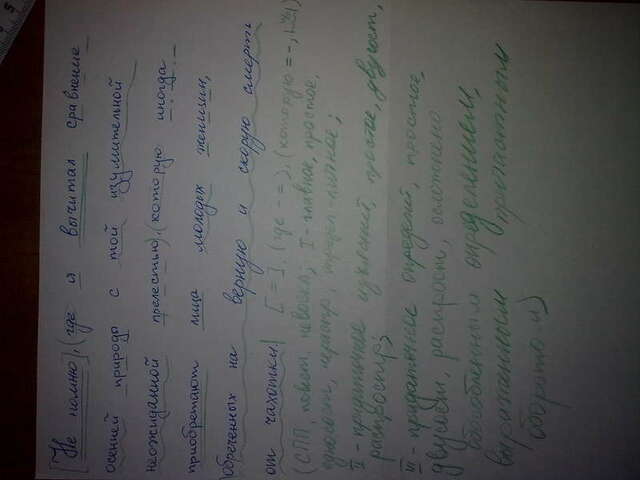 [Не помню], (где я вычитал сравнение
осенней природы с той изумительной
неожиданной прелестью), (которую иногда
приобретают лица молодых женщин,
|обреченных на верную и скорую смерть
от чахотки|. [=], (где -=), (которую =-,
(СПП, повест, невоскл; I-главное, простое,
односост, нераспр, определ-личное;
II-придаточное простое, двусост,
распростр;
III-придаточное определит, простое,
двусост, распрост, осложнено
обособленным определением,
выраженным причастным
оборотом)